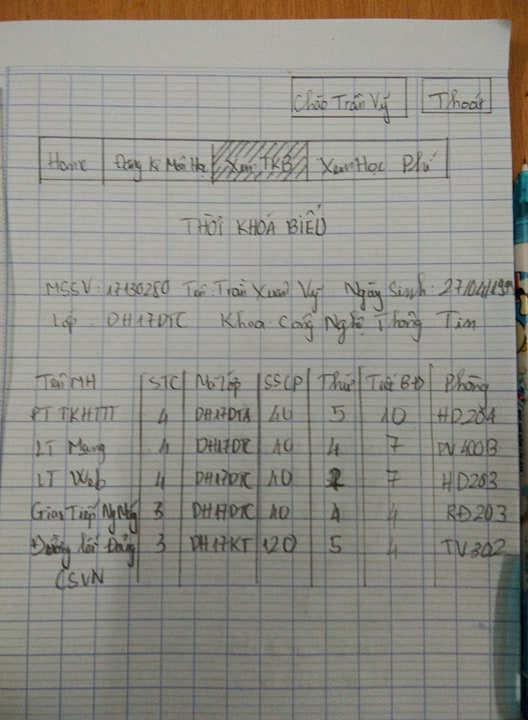 Chào Trần Vỹ Thoát
Home Đăng Kí Môn Học Xem TKB Xem Học Phí
THỜI KHOÁ BIỂU
MSSV: 17130280 Tên Trần Xuân Vỹ Ngày Sinh: 27/04/1999
Lớp DH17DTC Khoa Công Nghệ Thông Tin
Tên MH STC Mã lớp SSCP Thứ Tiết BĐ Phòng
PT TKHTTT 4 DH17DTA 40 5 10 HD204
LT Mạng 4 DH17DTC 40 4 7 PV400B
LT Web 4 DH17DTC 40 2 7 HD203
Giao Tiếp Ng Ngữ 3 DH17DTC 40 4 4 RĐ203
Đường lối Đảng 3 DH17KT 120 5 4 TV302
CSVN